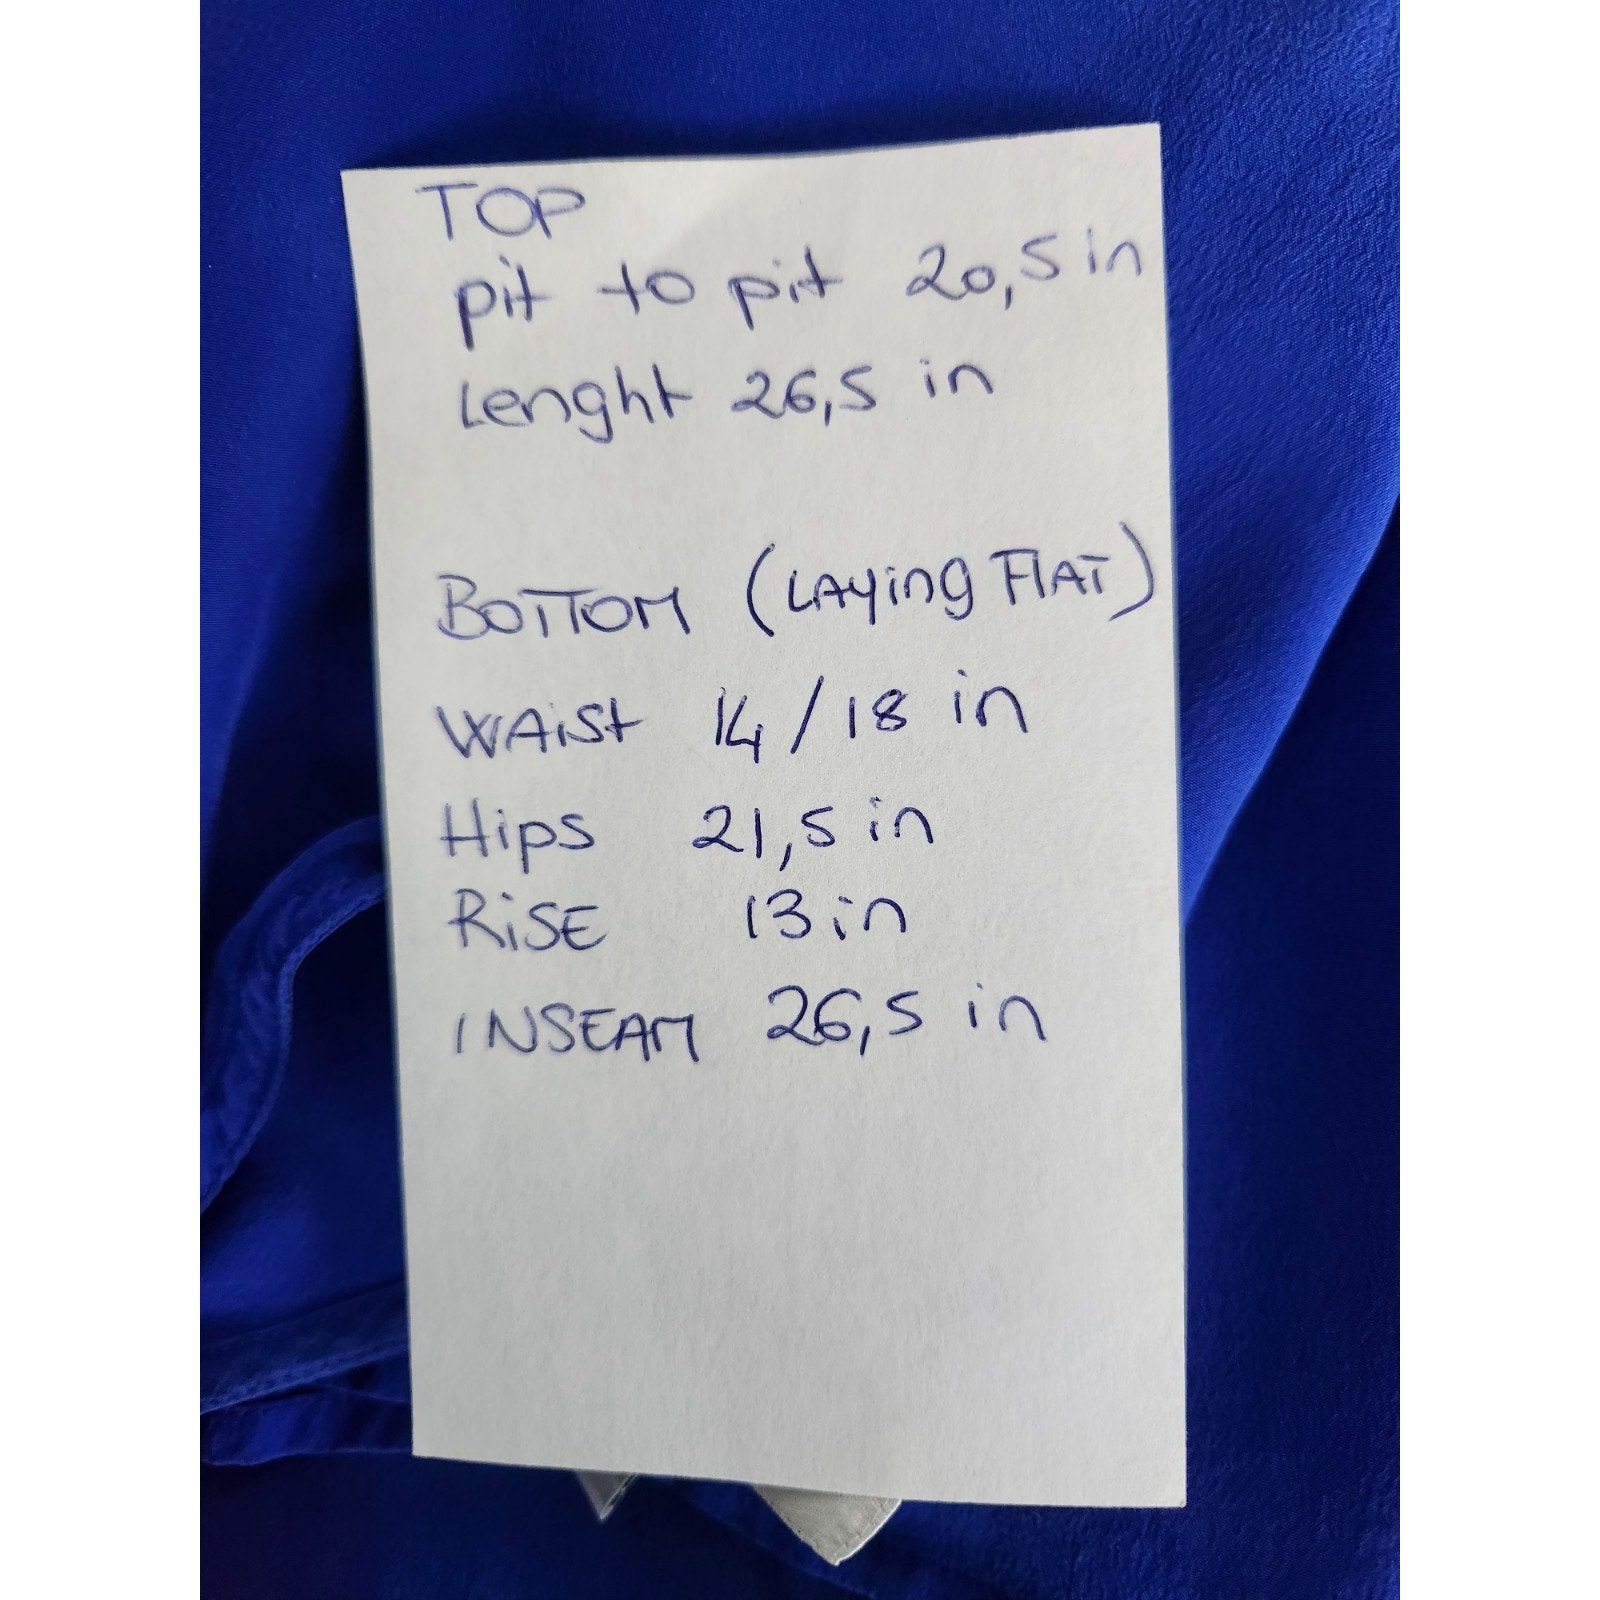 TOP
pit to pit 20,5 in
Lenght 26,5 in
BOTTOM (LAYing FLAT)
WAiSt 14/18 in
Hips 21,5 in
RiSE 13 in
INSEAM 26,5 in